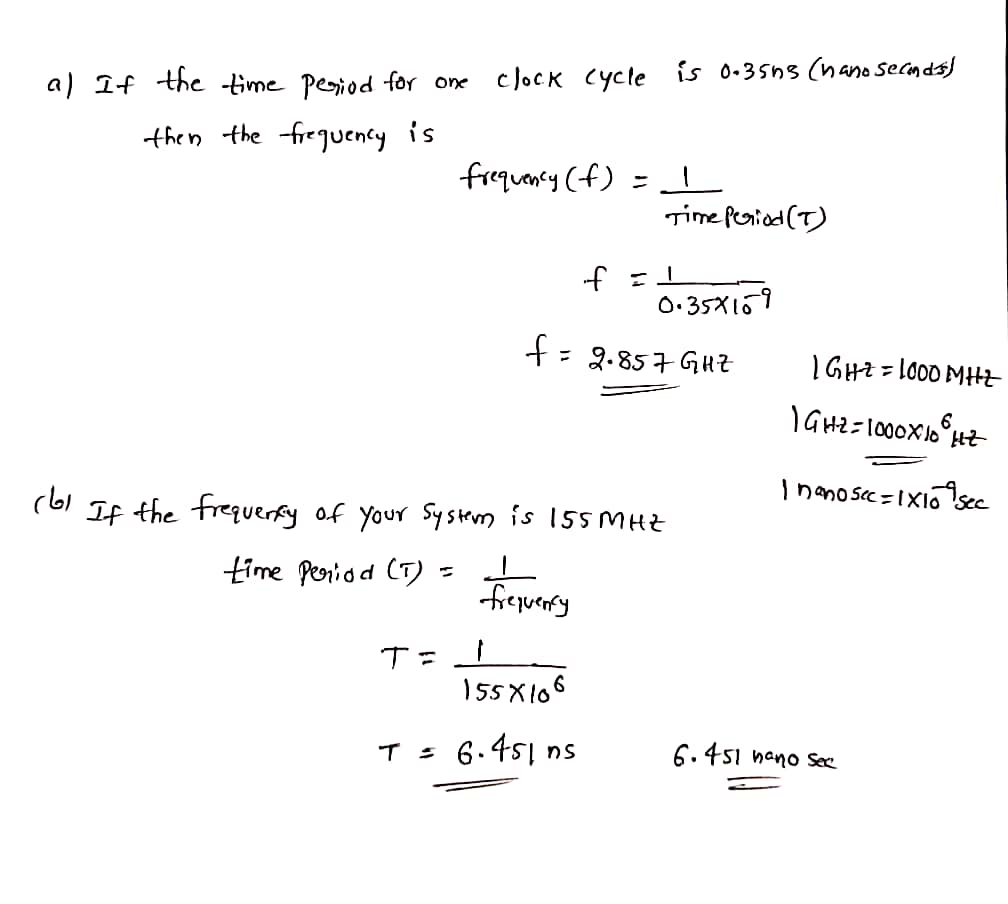 a) If the time Period for one clock cycle is 0.35ns (nano seconds)
then the frequency is
frequency (f) = 1
Time Period (T)
f = 1
0.35X10^-9
f = 2.857 GHZ
1 GHZ = 1000 MHZ
1 GHZ = 1000X10^6 HZ
1 nano sec = 1X10^-9 sec
(b) If the frequency of your System is 155 MHZ
time Period (T) = 1
frequency
T = 1
155X10^6
T = 6.451 ns
6.451 nano sec